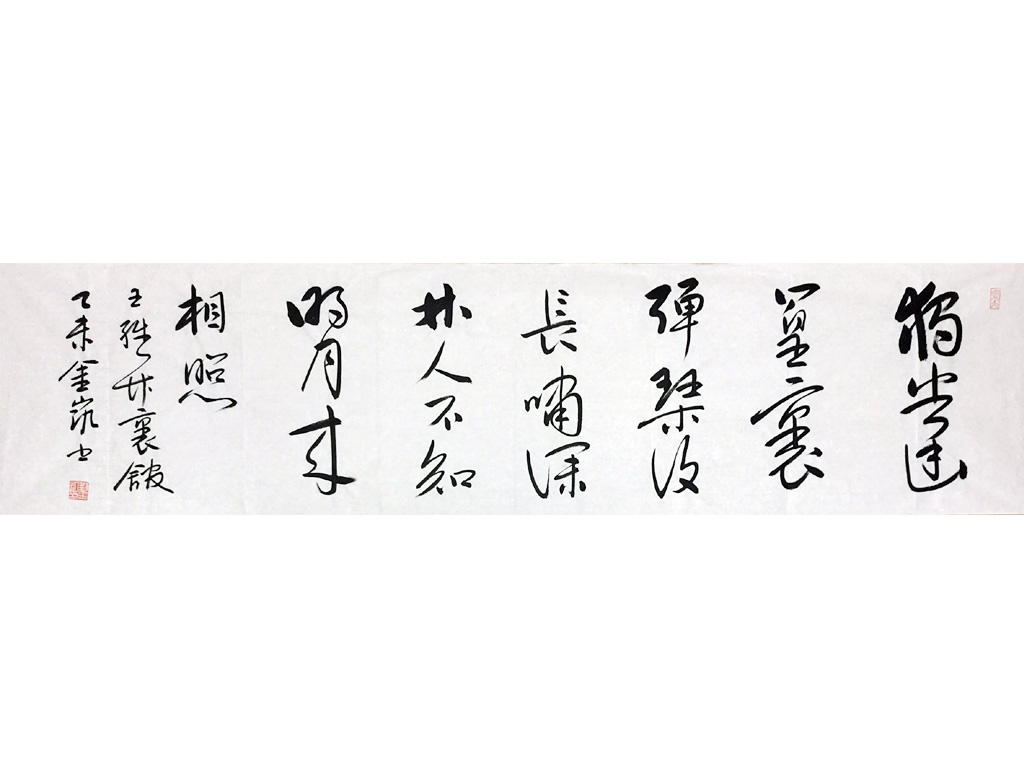 獨坐幽
篁裏
彈琴復
長嘯深
林人不知
明月來
相照
王維竹裏館
乙未金书